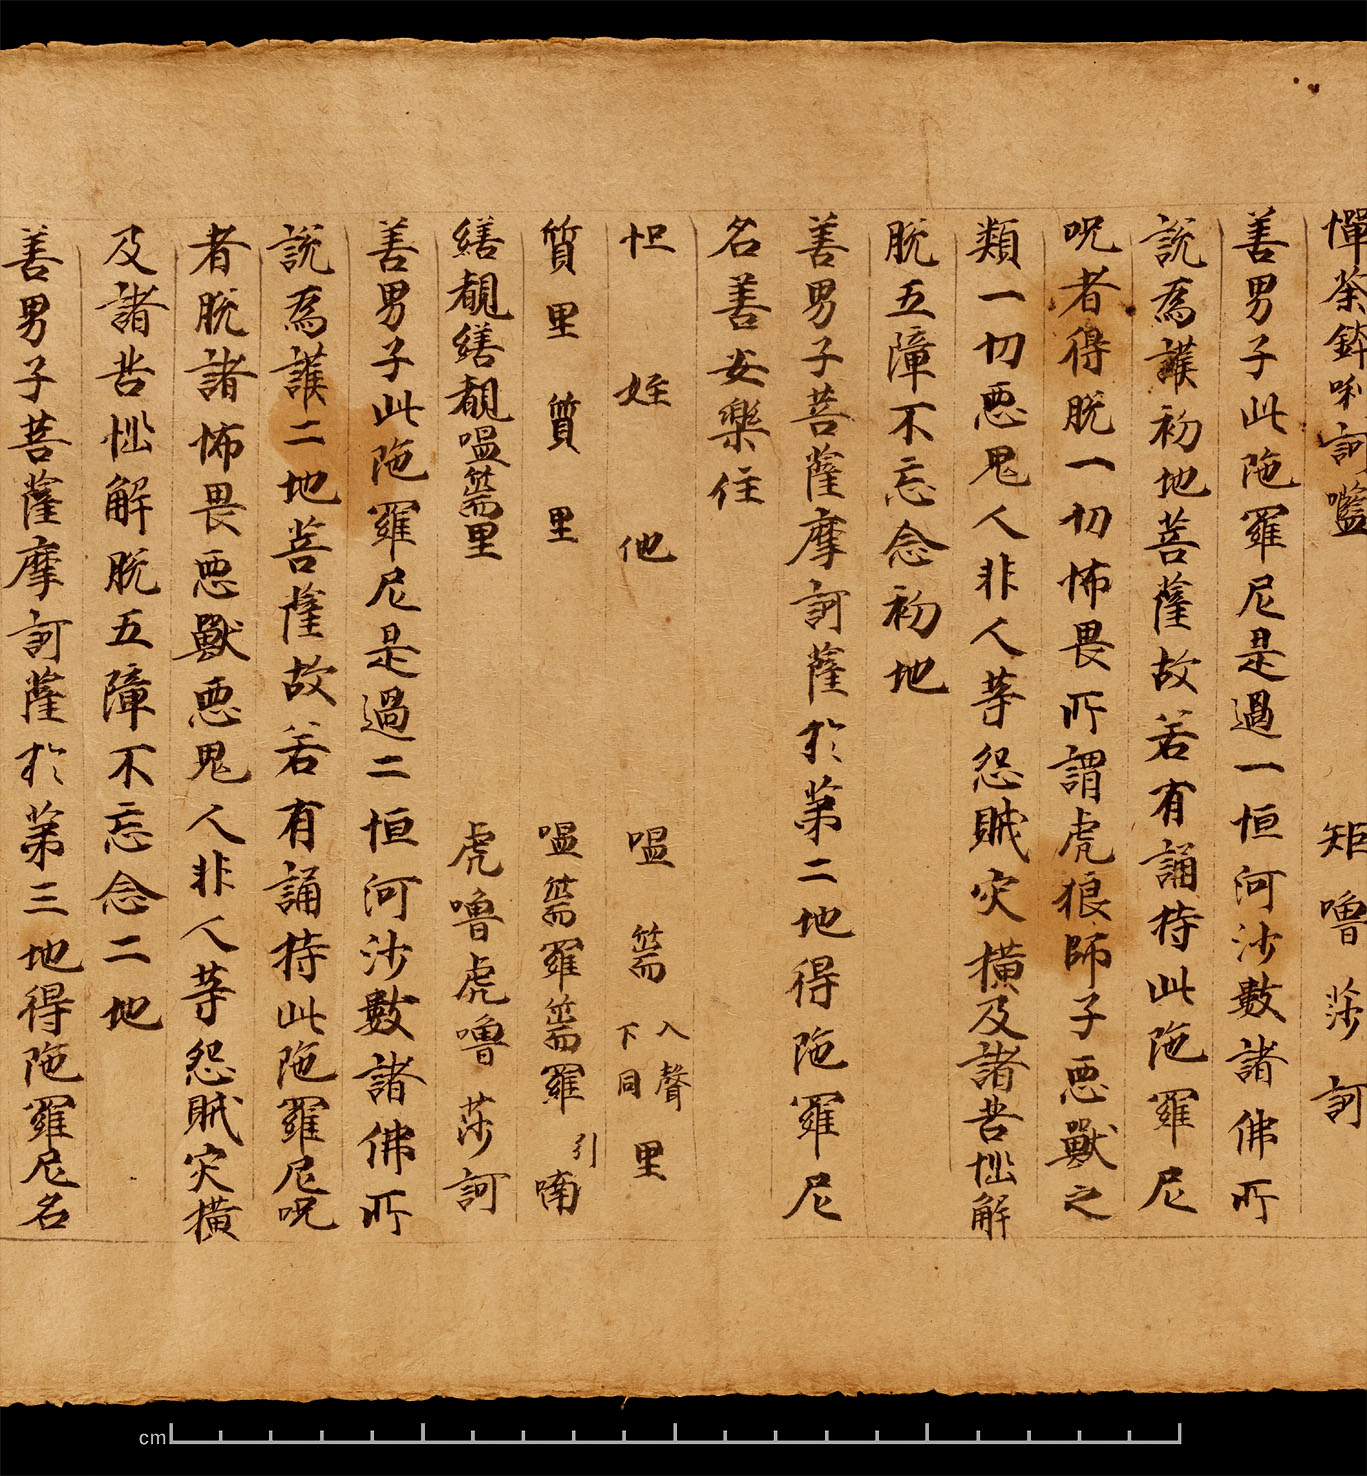 憚荼鉢唎訶嚂　矩嚕莎訶
善男子此陁羅尼是過一恒河沙數諸佛所
說為護初地菩薩故若有誦持此陁羅尼
呪者得脫一切怖畏所謂虎狼師子惡獸之
類一切惡鬼人非人等怨賊灾橫及諸苦惱解
脫五障不忘念初地
善男子菩薩摩訶薩於第二地得陁羅尼
名善安樂住
怛姪他　嗢篅入聲下同里
質里質里　嗢篅羅篅羅引喃
繕覩繕覩嗢篅里　虎嚕虎嚕莎訶
善男子此陁羅尼是過二恒河沙數諸佛所
說為護二地菩薩故若有誦持此陁羅尼呪
者脫諸怖畏惡獸惡鬼人非人等怨賊灾橫
及諸苦惱解脫五障不忘念二地
善男子菩薩摩訶薩於第三地得陁羅尼名